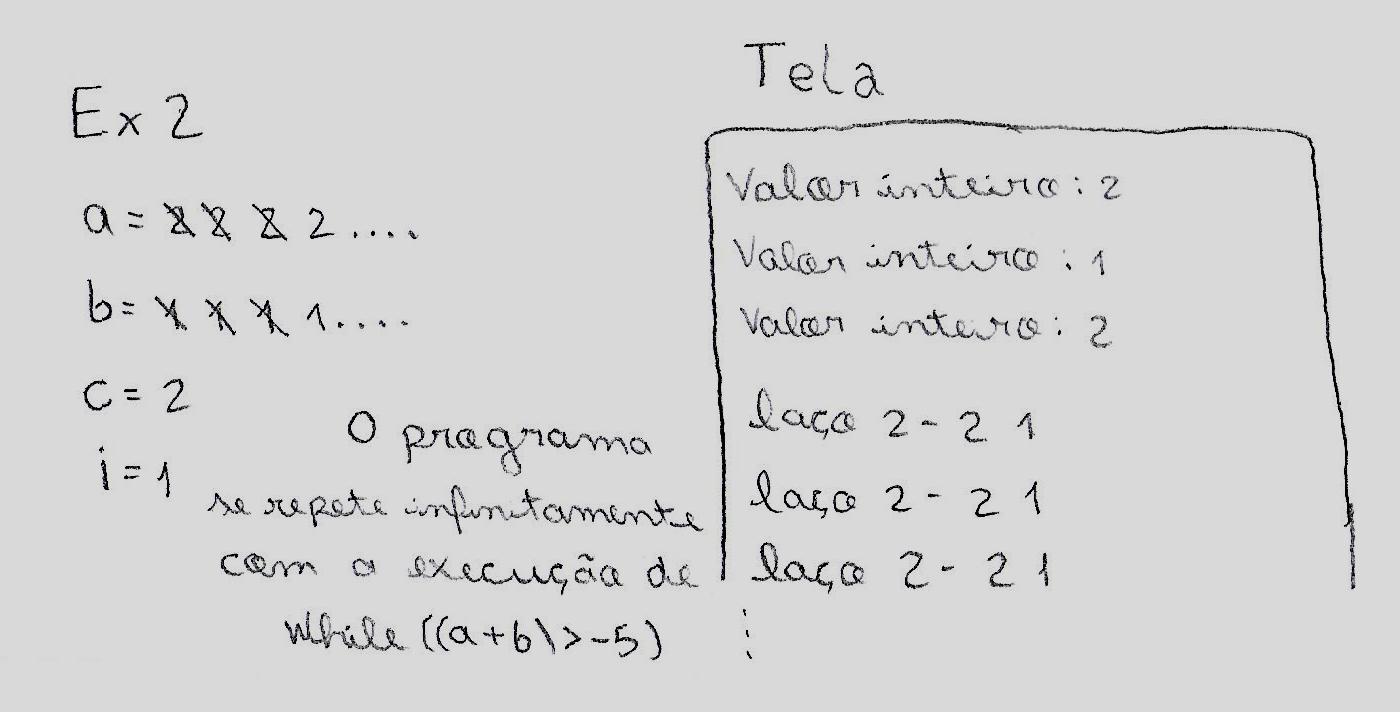 Ex 2
a = 2 2 2 2....
b = 1 1 1 1....
c = 2
i = 1
O programa
se repete infinitamente
com a execução de
While ((a+b)>-5)
Tela
Valor inteiro: 2
Valor inteiro: 1
Valor inteiro: 2
laço 2 - 2 1
laço 2 - 2 1
laço 2 - 2 1